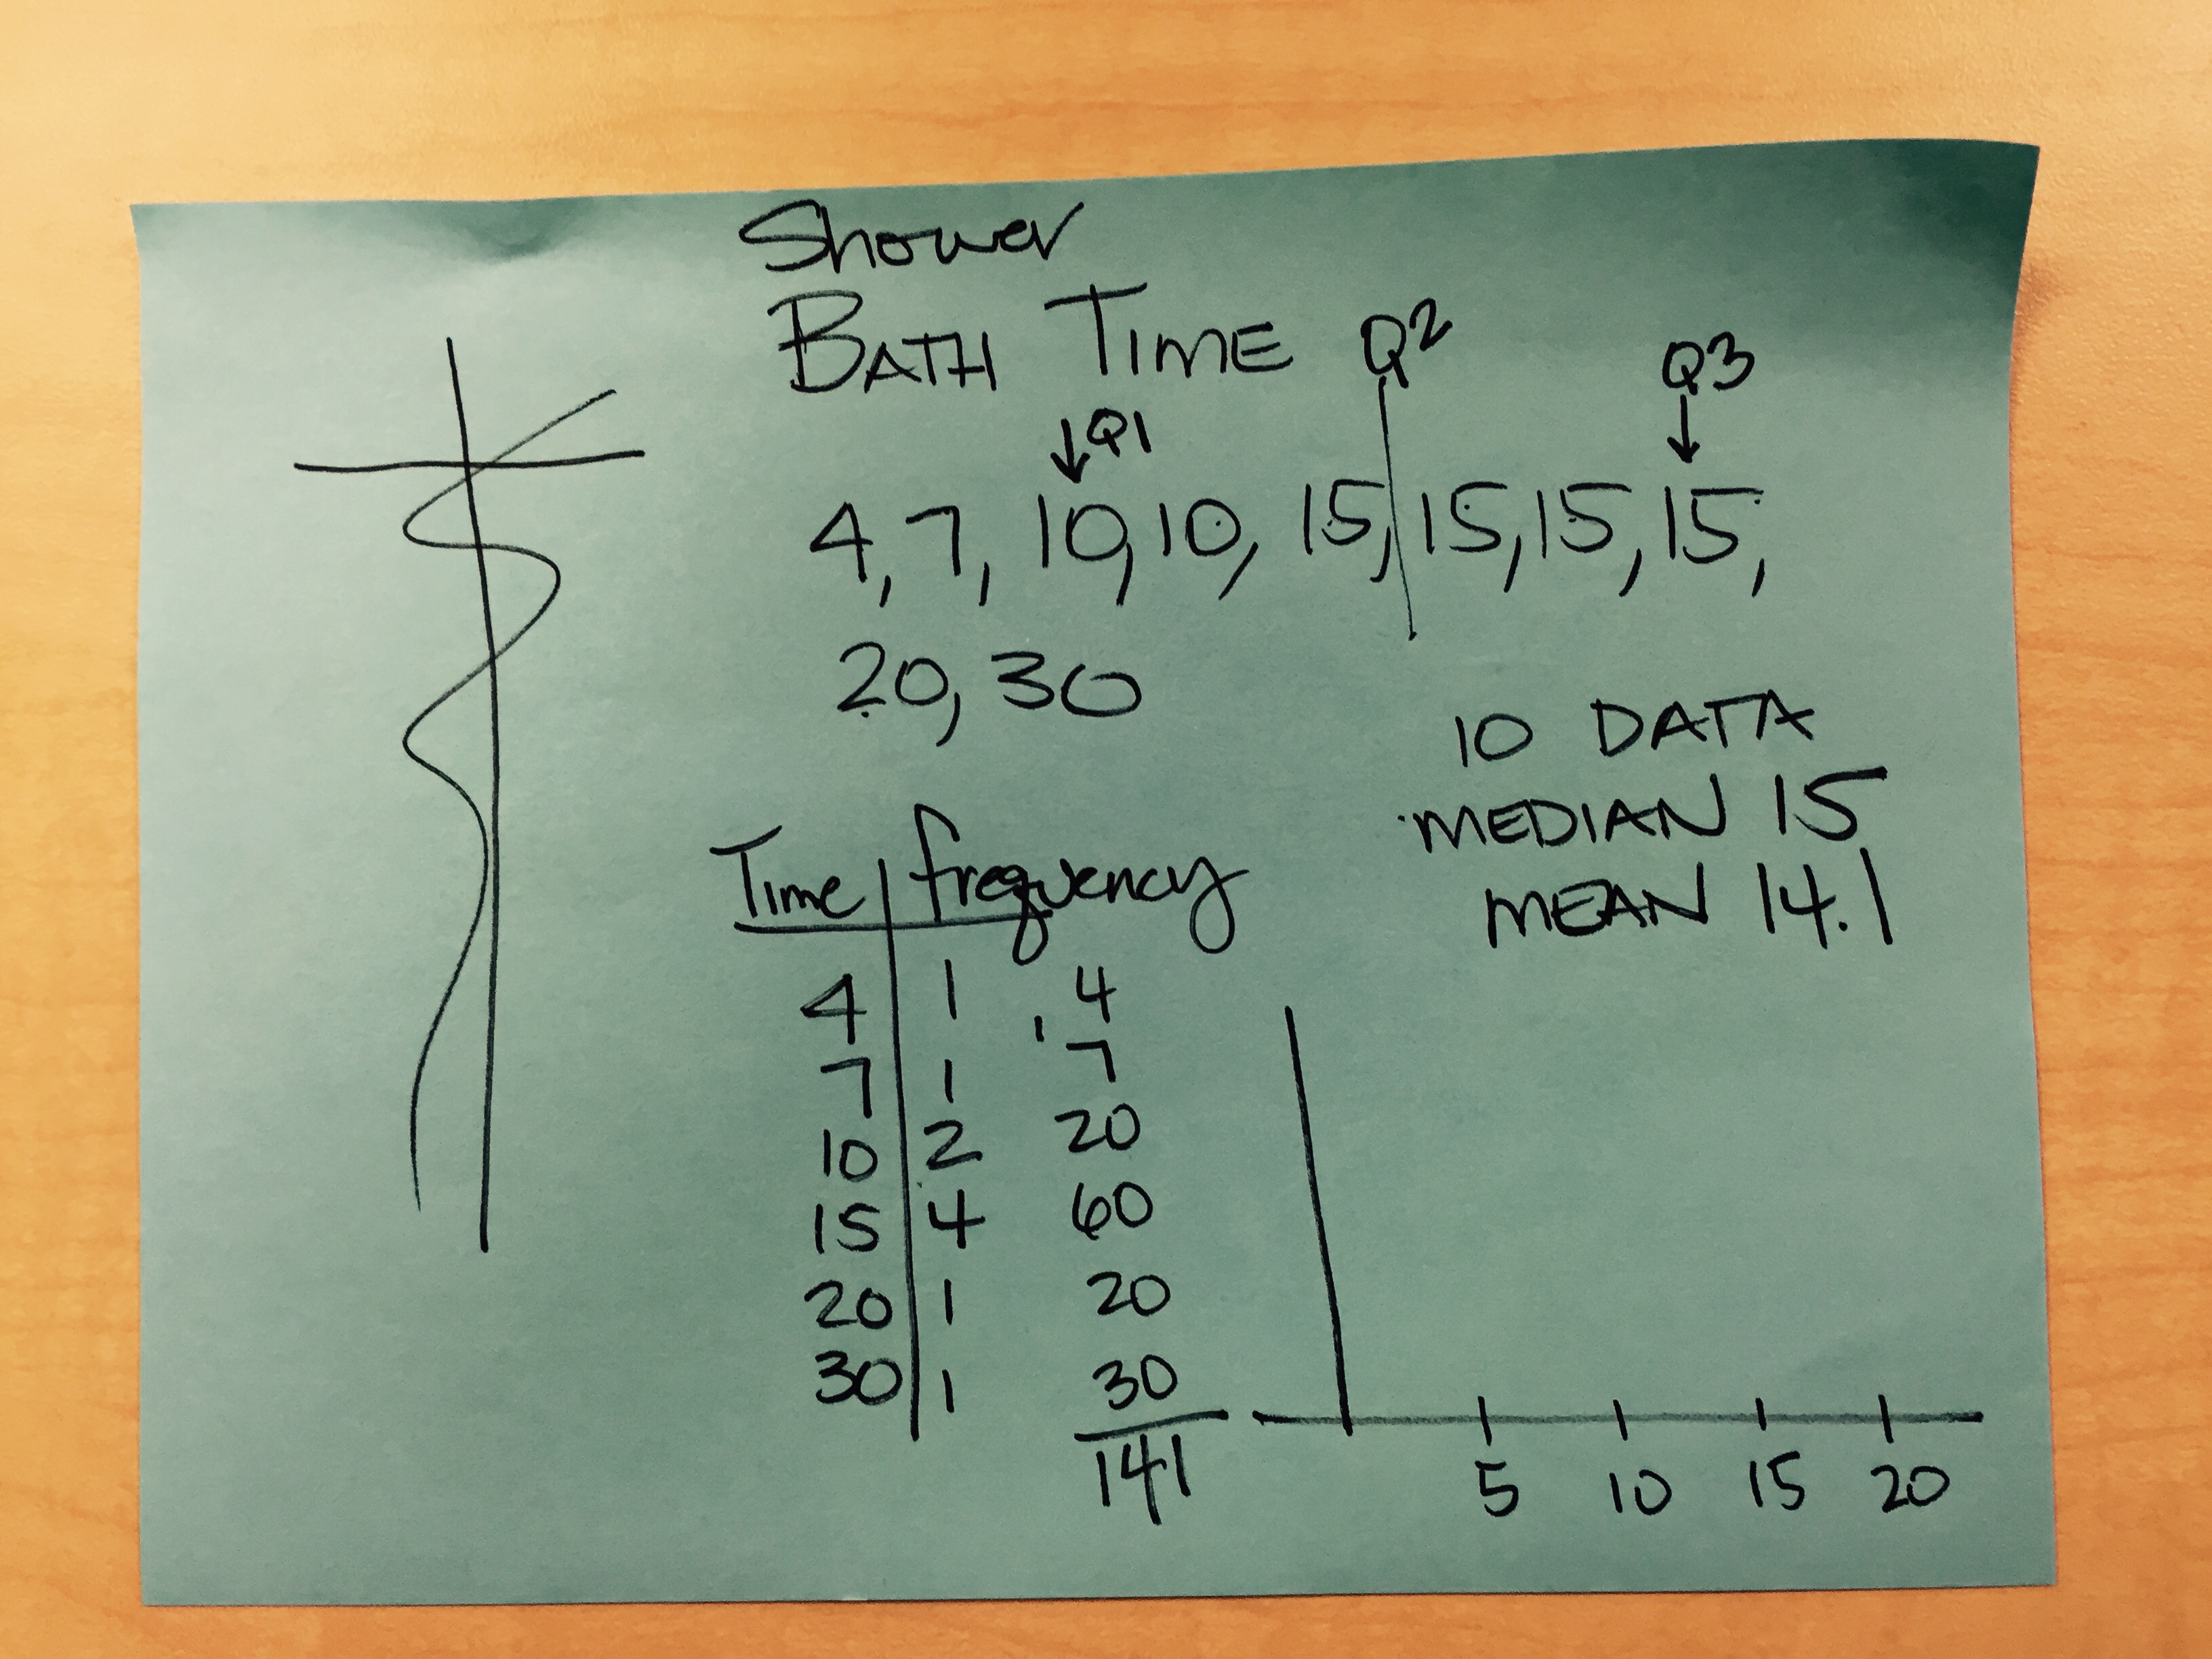 Shower
BATH TIME Q2 Q3
Q1
4, 7, 10, 10, 15, 15, 15, 15,
20, 30
10 DATA
MEDIAN 15
MEAN 14.1
Time frequency
4 1 4
7 1 7
10 2 20
15 4 60
20 1 20
30 1 30
141
5 10 15 20